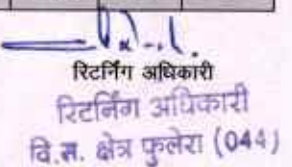 रिटर्निंग अधिकारी
रिटर्निंग अधिकारी
वि.स. क्षेत्र फुलेरा (044)